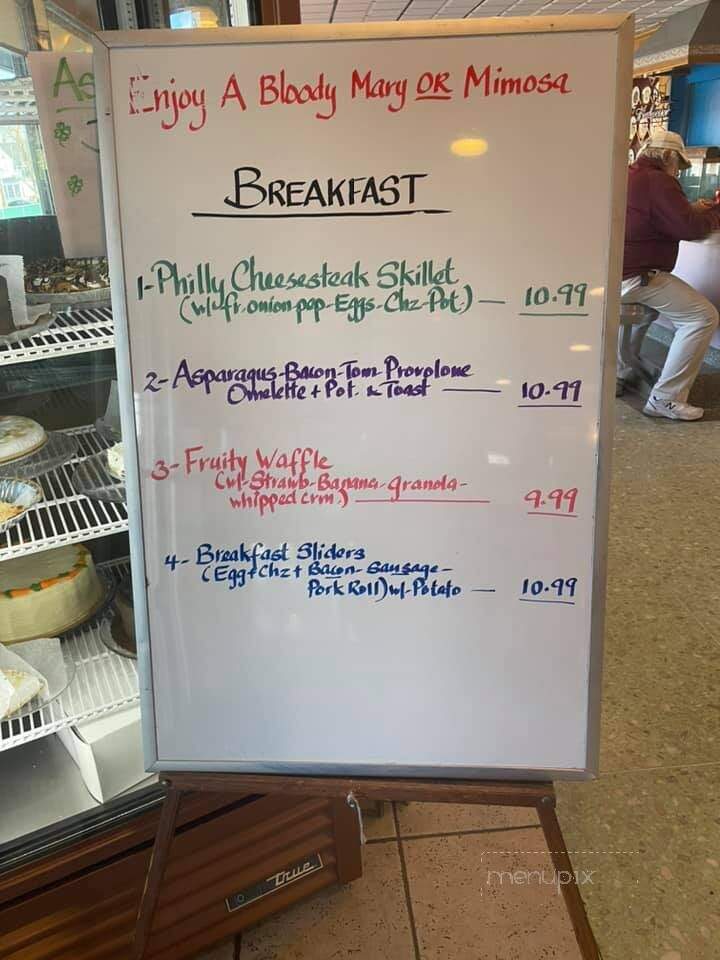 Enjoy A Bloody Mary OR Mimosa
BREAKFAST
1-Philly Cheesesteak Skillet
(w/-fr.onion-pep-Eggs-Chz-Pot.) — 10.99
2-Asparagus-Bacon-Tom-Provolone
Omelette + Pot. & Toast — 10.99
3-Fruity Waffle
(w/-Strawb-Banana-granola-
whipped crm.) — 9.99
4- Breakfast Sliders
(Egg+Chz+Bacon-Sausage-
Pork Roll) w/-Potato — 10.99
As
True
menupix